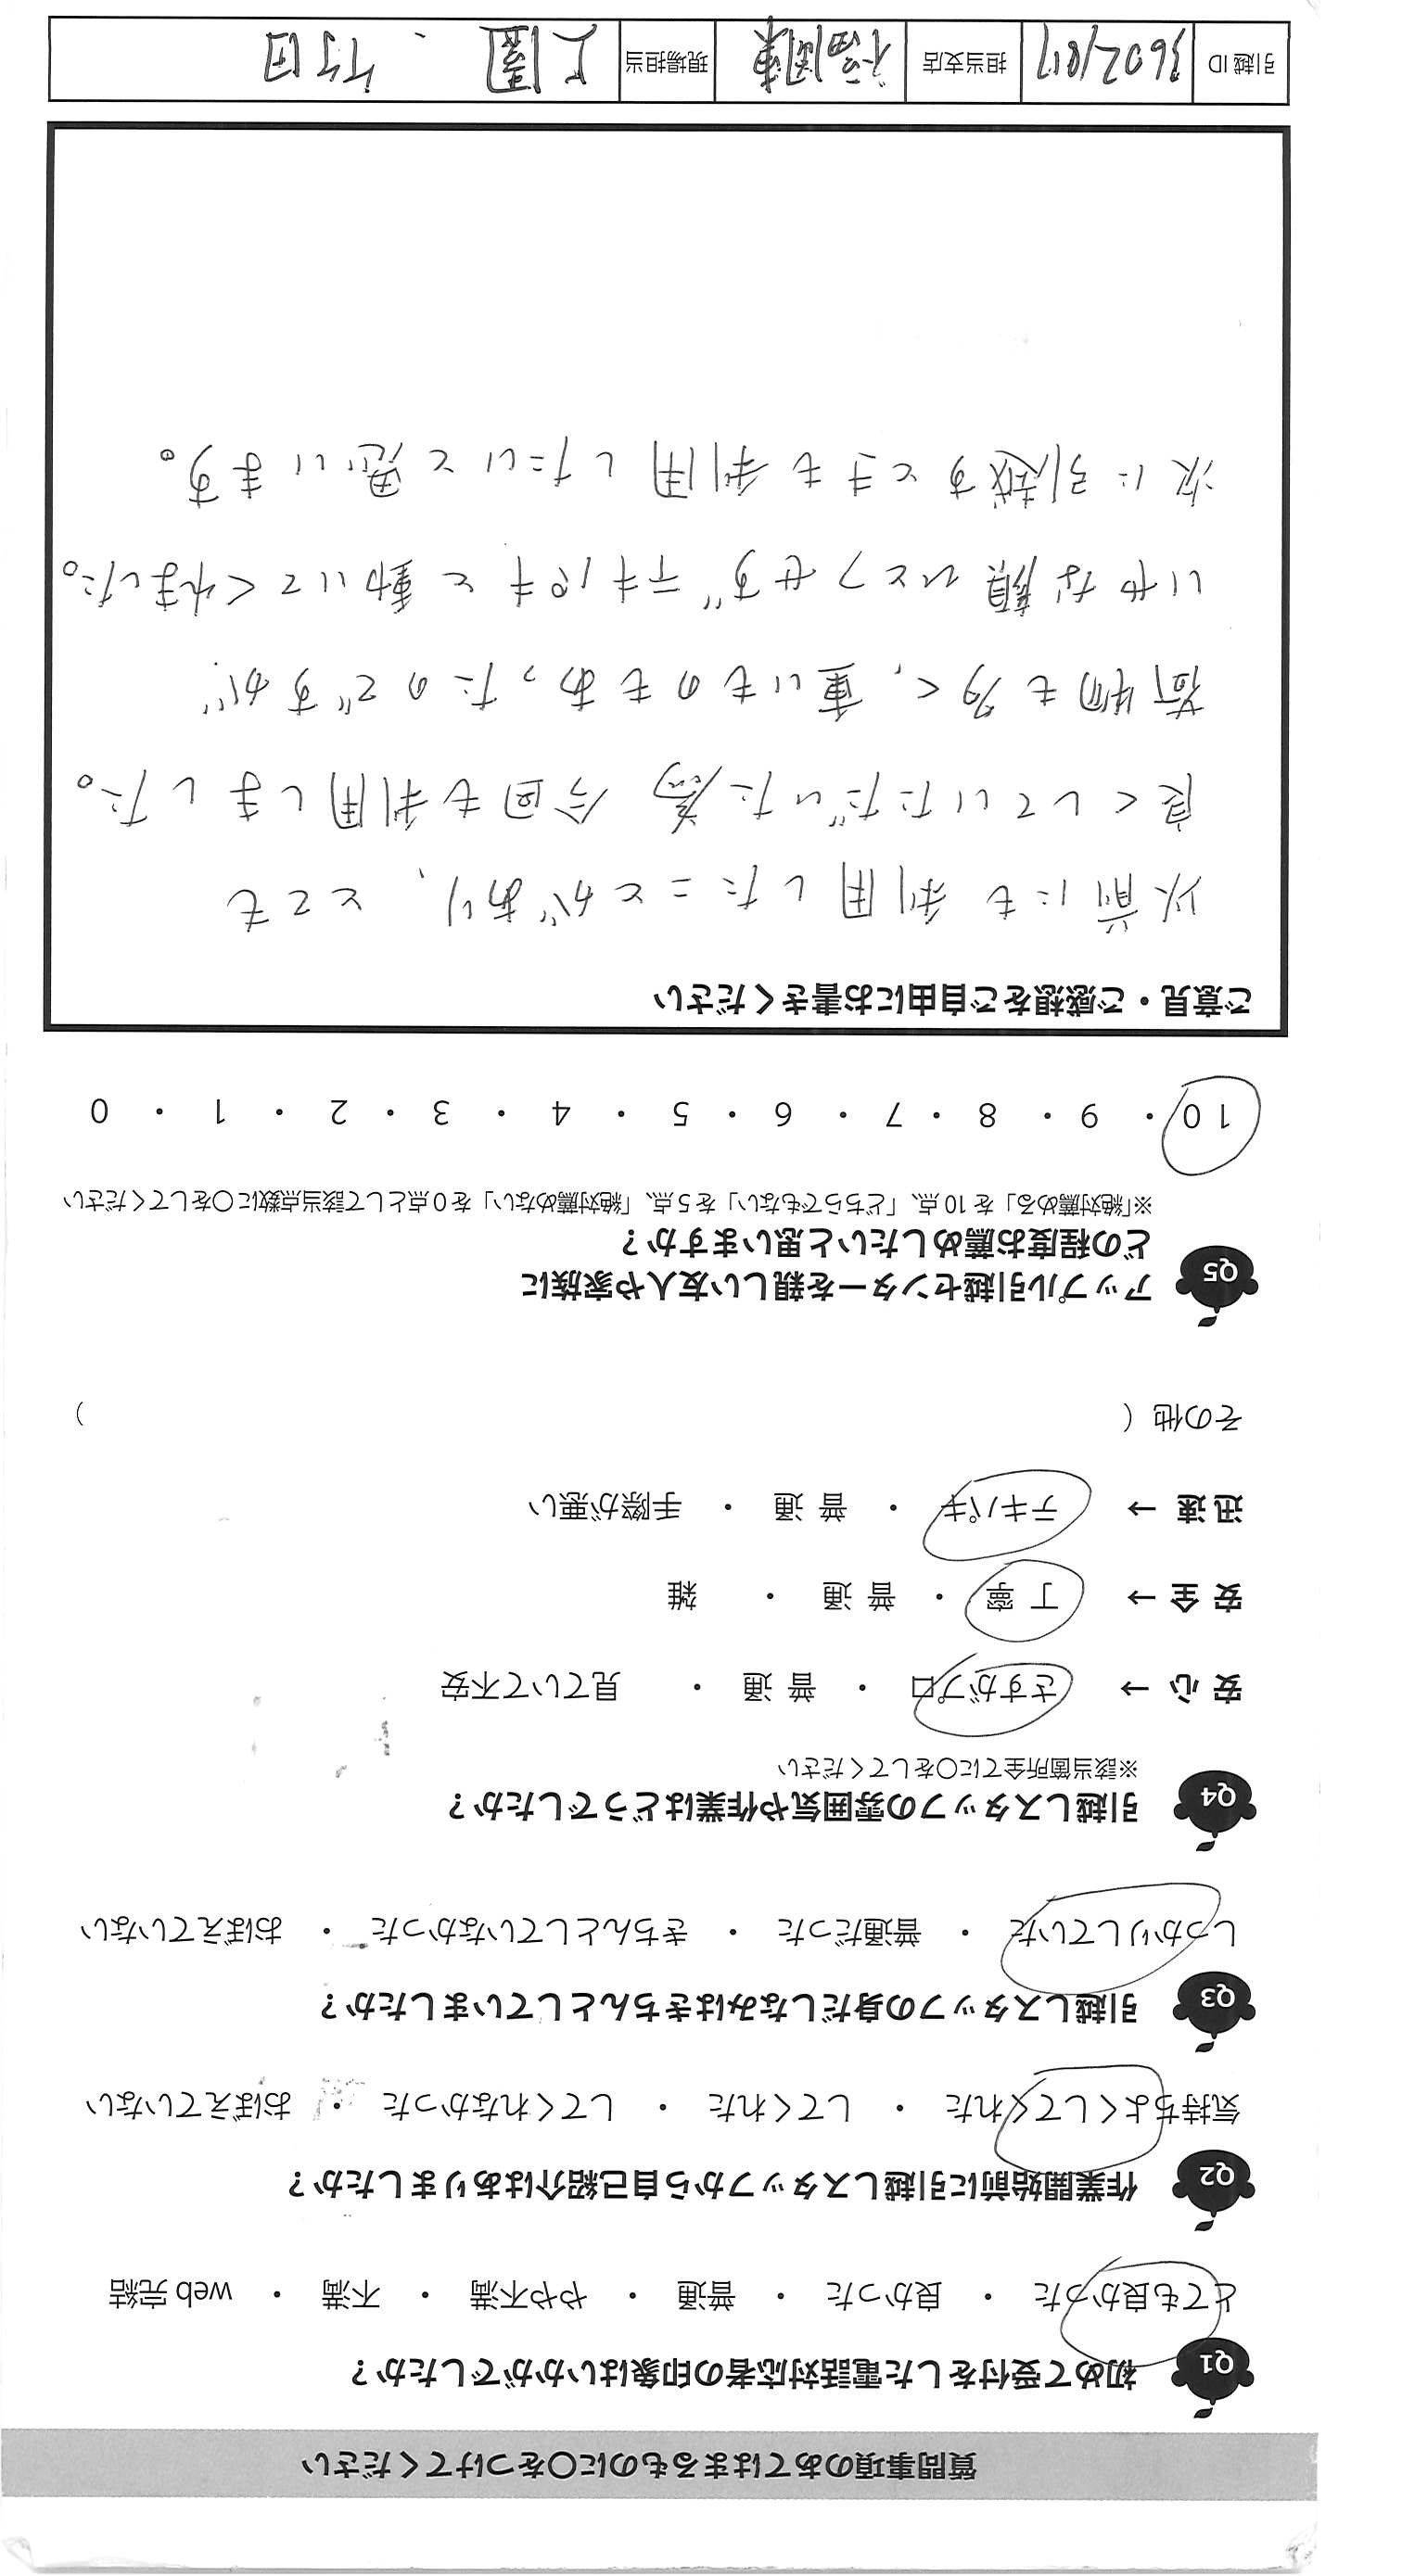 質問事項のあてはまるものに〇をつけてください
Q1 初めて受付をした電話対応者の印象はいかがでしたか？
とても良かった ・ 良かった ・ 普通 ・ やや不満 ・ 不満 ・ web完結
Q2 作業開始前に引越しスタッフから自己紹介はありましたか？
気持ちよくしてくれた ・ してくれた ・ してくれなかった ・ おぼえていない
Q3 引越しスタッフの身だしなみはきちんとしていましたか？
しっかりしていた ・ 普通だった ・ きちんとしていなかった ・ おぼえていない
Q4 引越しスタッフの雰囲気や作業はどうでしたか？
※該当箇所全てに〇をしてください
安心 → さすがプロ ・ 普通 ・ 見ていて不安
安全 → 丁寧 ・ 普通 ・ 雑
迅速 → テキパキ ・ 普通 ・ 手際が悪い
その他（ ）
Q5 アップル引越センターを親しい友人や家族に
どの程度お薦めしたいと思いますか？
※「絶対薦める」を10点、「どちらでもない」を5点、「絶対薦めない」を0点として該当点数に〇をしてください
10 ・ 9 ・ 8 ・ 7 ・ 6 ・ 5 ・ 4 ・ 3 ・ 2 ・ 1 ・ 0
ご意見・ご感想をご自由にお書きください
以前にも利用したことがあり、とても
良くしていただいた為 今回も利用しました。
荷物も多く、重いものもあったのですが
いやな顔ひとつせずテキパキと動いてくれました。
次に引越すときも利用したいと思います。
引越ID 36021817 担当支店 福岡東 現場担当 上園 ・ 竹田